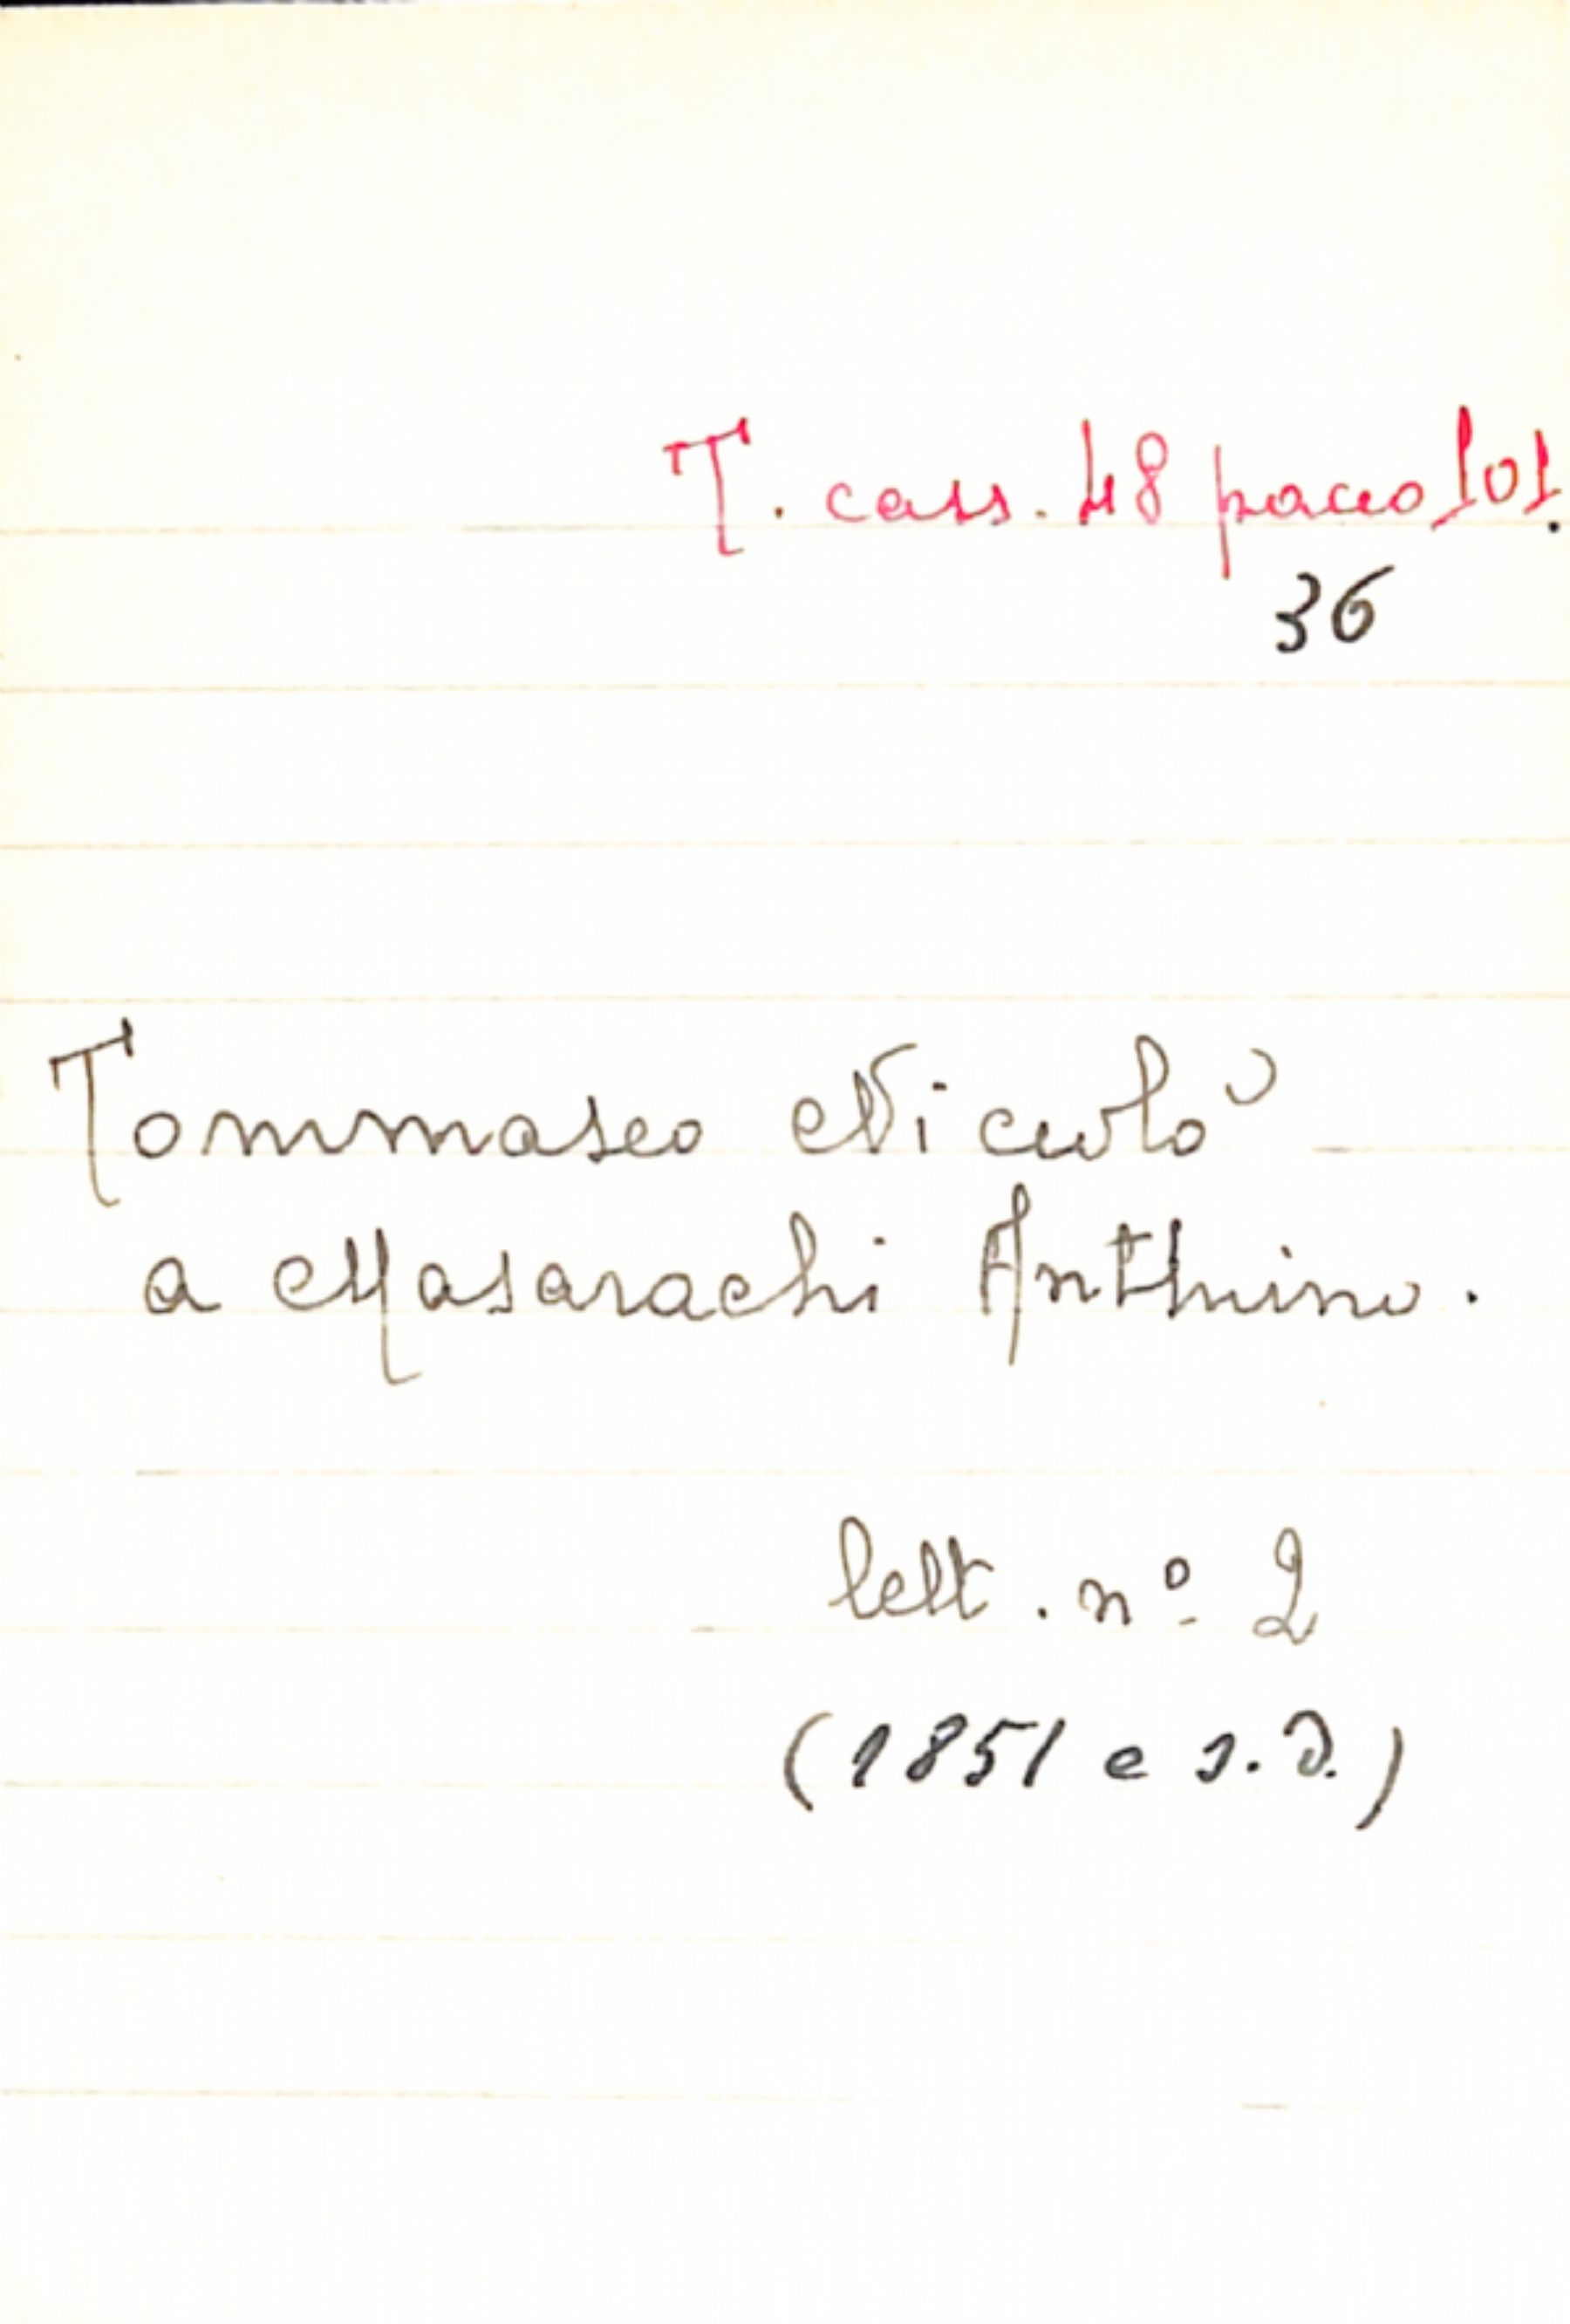 T. cass. 48 pacco 101.
36
Tommaseo Niccolò
a Masarachi Anthimo.
lett. nº 2
(1851 e s.d.)